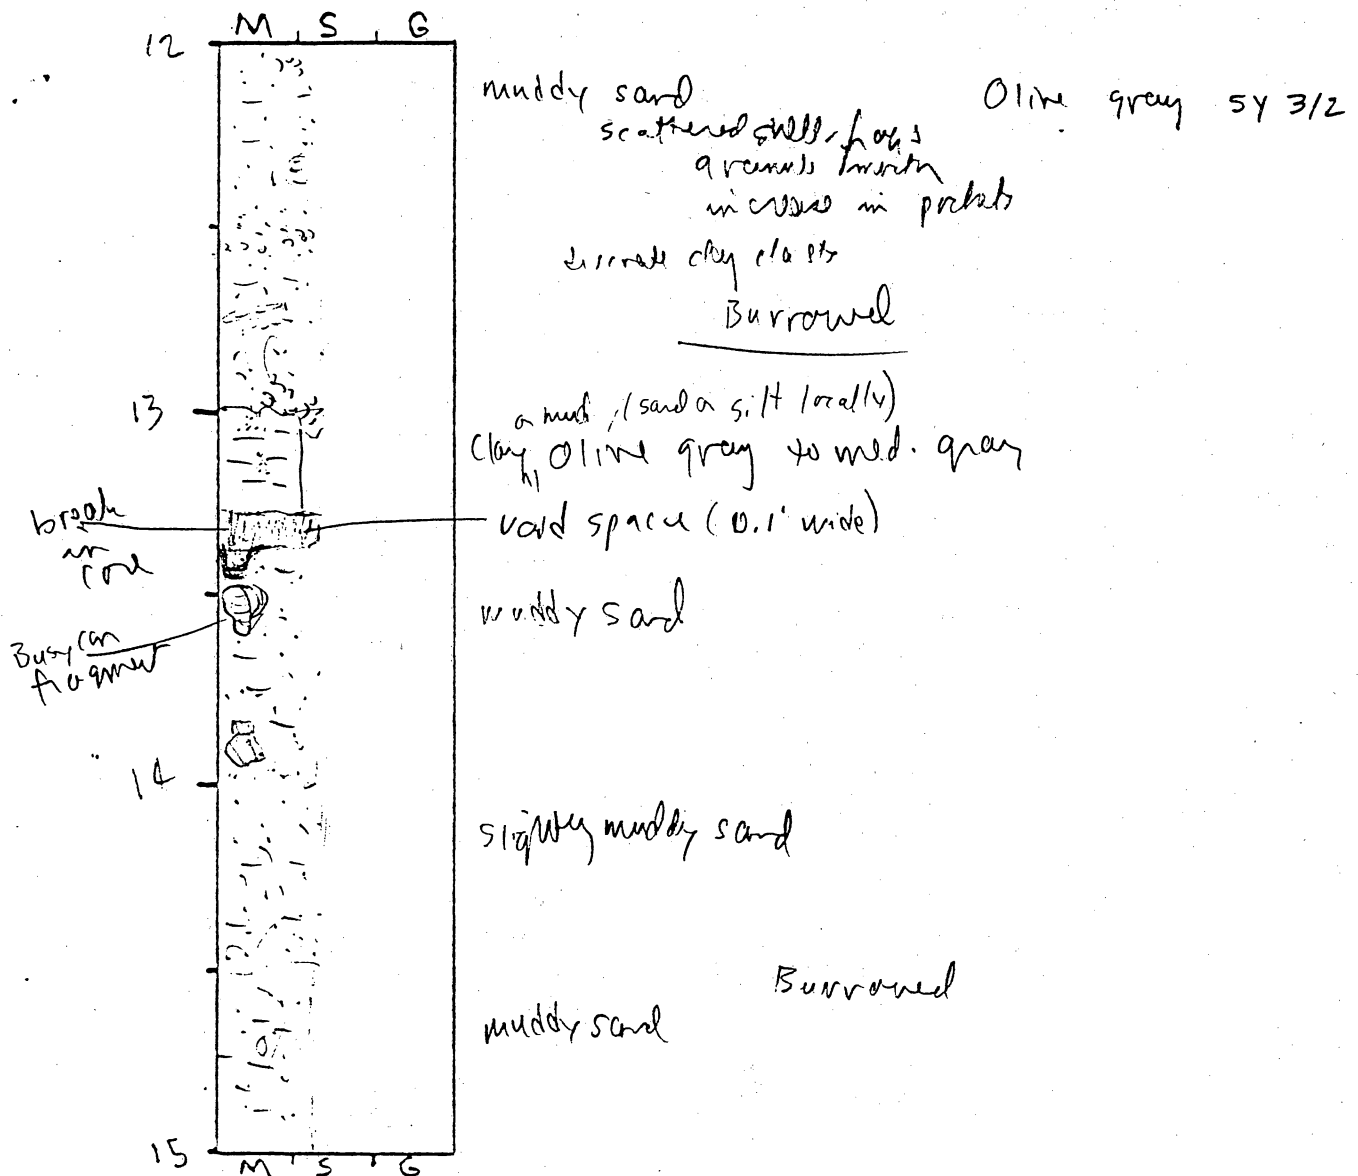 M S G
12
muddy sand
Olive gray 5Y 3/2
scattered shell frags
increase in pockets
discrete clay clasts
Burrowed
13
or mud, (sand or silt locally)
Clay, Olive gray to med. gray
break
in
core
void space (0.1' wide)
muddy sand
Busycon
fragment
14
slightly muddy sand
Burrowed
muddy sand
15
M S G